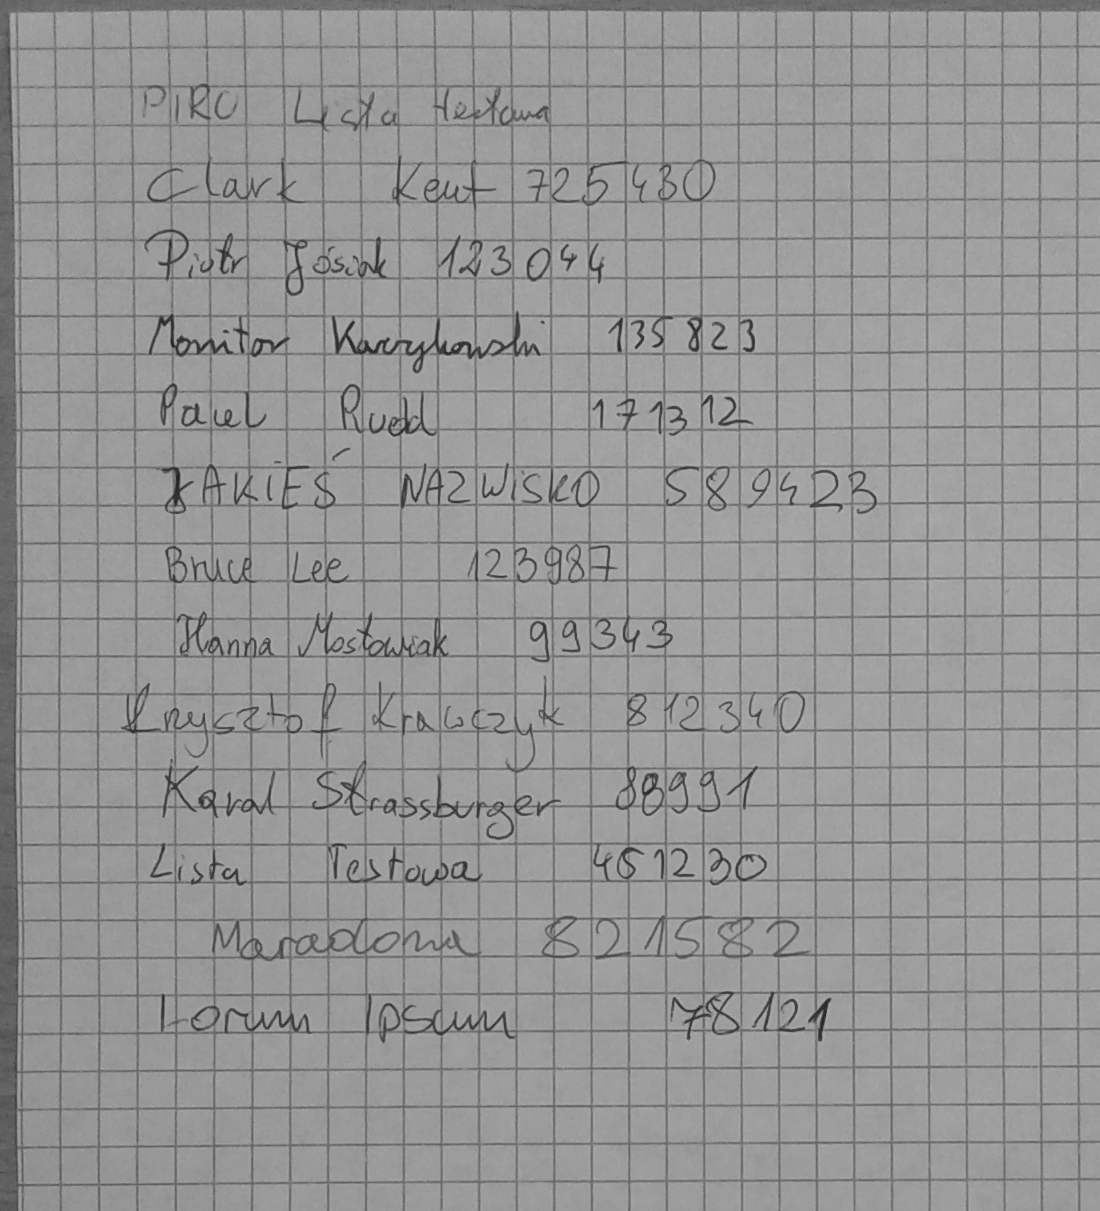 PIRO Lista testowa
Clark Kent 725430
Piotr Jósiak 123044
Monitor 135823
Paweł Rudd 171312
JAKIEŚ NAZWISKO 589423
Bruce Lee 123987
Hanna Mostowiak 99343
Krzysztof Krawczyk 812340
Karol Strassburger 88991
Lista Testowa 451230
Maradona 821582
Lorum Ipsum 78121